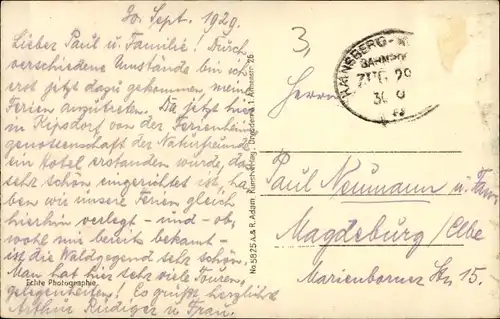 30. Sept. 1929.
Lieber Paul u. Familie! Durch
verschiedene Umstände bin ich
erst jetzt dazu gekommen, mein
Ferien anzutreten. Da jetzt hier
in Kipsdorf von der Ferienheim
genossenschaft der Naturfreunde
ein Hotel erstanden wurde, das
sehr schön eingerichtet ist, ha-
ben wir unsere Ferien gleich
hierhin verlegt - und - ob-
wohl mir bereits bekannt -
ist die Waldgegend sehr schön.
Man hat hier sehr viele Touren-
gelegenheiten! Es grüßt herzlichst
Arthur Rüdiger u. Frau.
Echte Photographie
No 5825 A. & R. Adam, Kunstverlag, Dresden-A. 1, 25
3,
HAINSBERG-
BAHNPOST
ZUG 29
30 9
Herrn
Paul Neumann u. Fam.
Magdeburg/Elbe
Marienborner Str. 15.